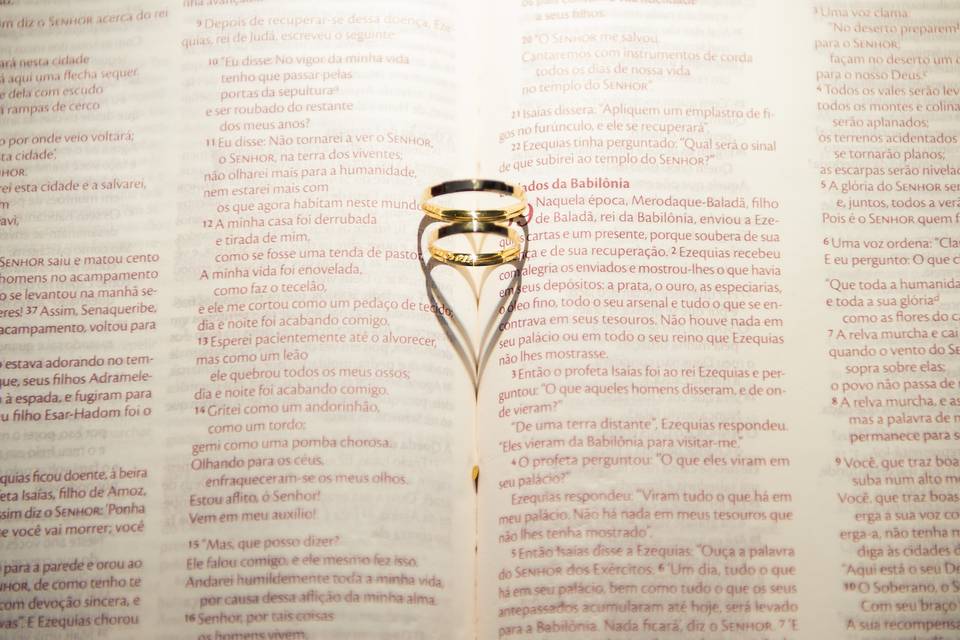 m diz o SENHOR acerca do rei
ará nesta cidade
á aqui uma flecha sequer.
e dela com escudo
á rampas de cerco
o por onde veio voltará;
sta cidade”,
HOR.
rei esta cidade e a salvarei,
m
avi,
SENHOR saiu e matou cento
homens no acampamento
o se levantou na manhã se-
eres! 37 Assim, Senaqueribe,
acampamento, voltou para
o estava adorando no tem-
que, seus filhos Adramele-
à espada, e fugiram para
u filho Esar-Hadom foi o
quias ficou doente, à beira
eta Isaías, filho de Amoz,
ssim diz o SENHOR: ‘Ponha
e você vai morrer; você
para a parede e orou ao
HOR, de como tenho te
com devoção sincera, e
vas”. E Ezequias chorou
9 Depois de recuperar-se dessa doença, Eze-
quias, rei de Judá, escreveu o seguinte:
10 “Eu disse: No vigor da minha vida
tenho que passar pelas
portas da sepultura
e ser roubado do restante
dos meus anos?
11 Eu disse: Não tornarei a ver o SENHOR,
o SENHOR, na terra dos viventes;
não olharei mais para a humanidade,
nem estarei mais com
os que agora habitam neste mundo
12 A minha casa foi derrubada
e tirada de mim,
como se fosse uma tenda de pastor.
A minha vida foi enovelada,
como faz o tecelão,
e ele me cortou como um pedaço de tecido;
dia e noite foi acabando comigo.
13 Esperei pacientemente até o alvorecer,
mas como um leão
ele quebrou todos os meus ossos;
dia e noite foi acabando comigo.
14 Gritei como um andorinhão,
como um tordo;
gemi como uma pomba chorosa.
Olhando para os céus,
enfraqueceram-se os meus olhos.
Estou aflito, ó Senhor!
Vem em meu auxílio!
15 “Mas, que posso dizer?
Ele falou comigo, e ele mesmo fez isso.
Andarei humildemente toda a minha vida,
por causa dessa aflição da minha alma.
16 Senhor, por tais coisas
os homens vivem,
a seus filhos.
20 “O SENHOR me salvou.
Cantaremos com instrumentos de corda
todos os dias de nossa vida
no templo do SENHOR”.
21 Isaías dissera: “Apliquem um emplastro de fi-
gos no furúnculo, e ele se recuperará”.
22 Ezequias tinha perguntado: “Qual será o sinal
de que subirei ao templo do SENHOR?”
iados da Babilônia
Naquela época, Merodaque-Baladã, filho
de Baladã, rei da Babilônia, enviou a Eze-
quias cartas e um presente, porque soubera de sua
doença e de sua recuperação. 2 Ezequias recebeu
com alegria os enviados e mostrou-lhes o que havia
em seus depósitos: a prata, o ouro, as especiarias,
o óleo fino, todo o seu arsenal e tudo o que se en-
contrava em seus tesouros. Não houve nada em
seu palácio ou em todo o seu reino que Ezequias
não lhes mostrasse.
3 Então o profeta Isaías foi ao rei Ezequias e per-
guntou: “O que aqueles homens disseram, e de on-
de vieram?”
“De uma terra distante”, Ezequias respondeu.
“Eles vieram da Babilônia para visitar-me.”
4 O profeta perguntou: “O que eles viram em
seu palácio?”
Ezequias respondeu: “Viram tudo o que há em
meu palácio. Não há nada em meus tesouros que
não lhes tenha mostrado”.
5 Então Isaías disse a Ezequias: “Ouça a palavra
do SENHOR dos Exércitos: 6 ‘Um dia, tudo o que
há em seu palácio, bem como tudo o que os seus
antepassados acumularam até hoje, será levado
para a Babilônia. Nada ficará’, diz o SENHOR. 7 ‘E
3 Uma voz clama:
“No deserto preparem
para o SENHOR;
façam no deserto um c
para o nosso Deus.
4 Todos os vales serão lev
todos os montes e colina
serão aplanados;
os terrenos acidentados
se tornarão planos;
as escarpas serão nivelad
5 A glória do SENHOR ser
e, juntos, todos a verã
Pois é o SENHOR quem f
6 Uma voz ordena: “Cla
E eu pergunto: O que cl
“Que toda a humanida
e toda a sua glória
como as flores do ca
7 A relva murcha e cai
quando o vento do SE
sopra sobre elas;
o povo não passa de
8 A relva murcha, e as
mas a palavra de n
permanece para s
9 Você, que traz boa
suba num alto m
Você, que traz boas
erga a sua voz co
erga-a, não tenha m
diga às cidades d
“Aqui está o seu De
10 O Soberano, o S
Com seu braço
A sua recompensa